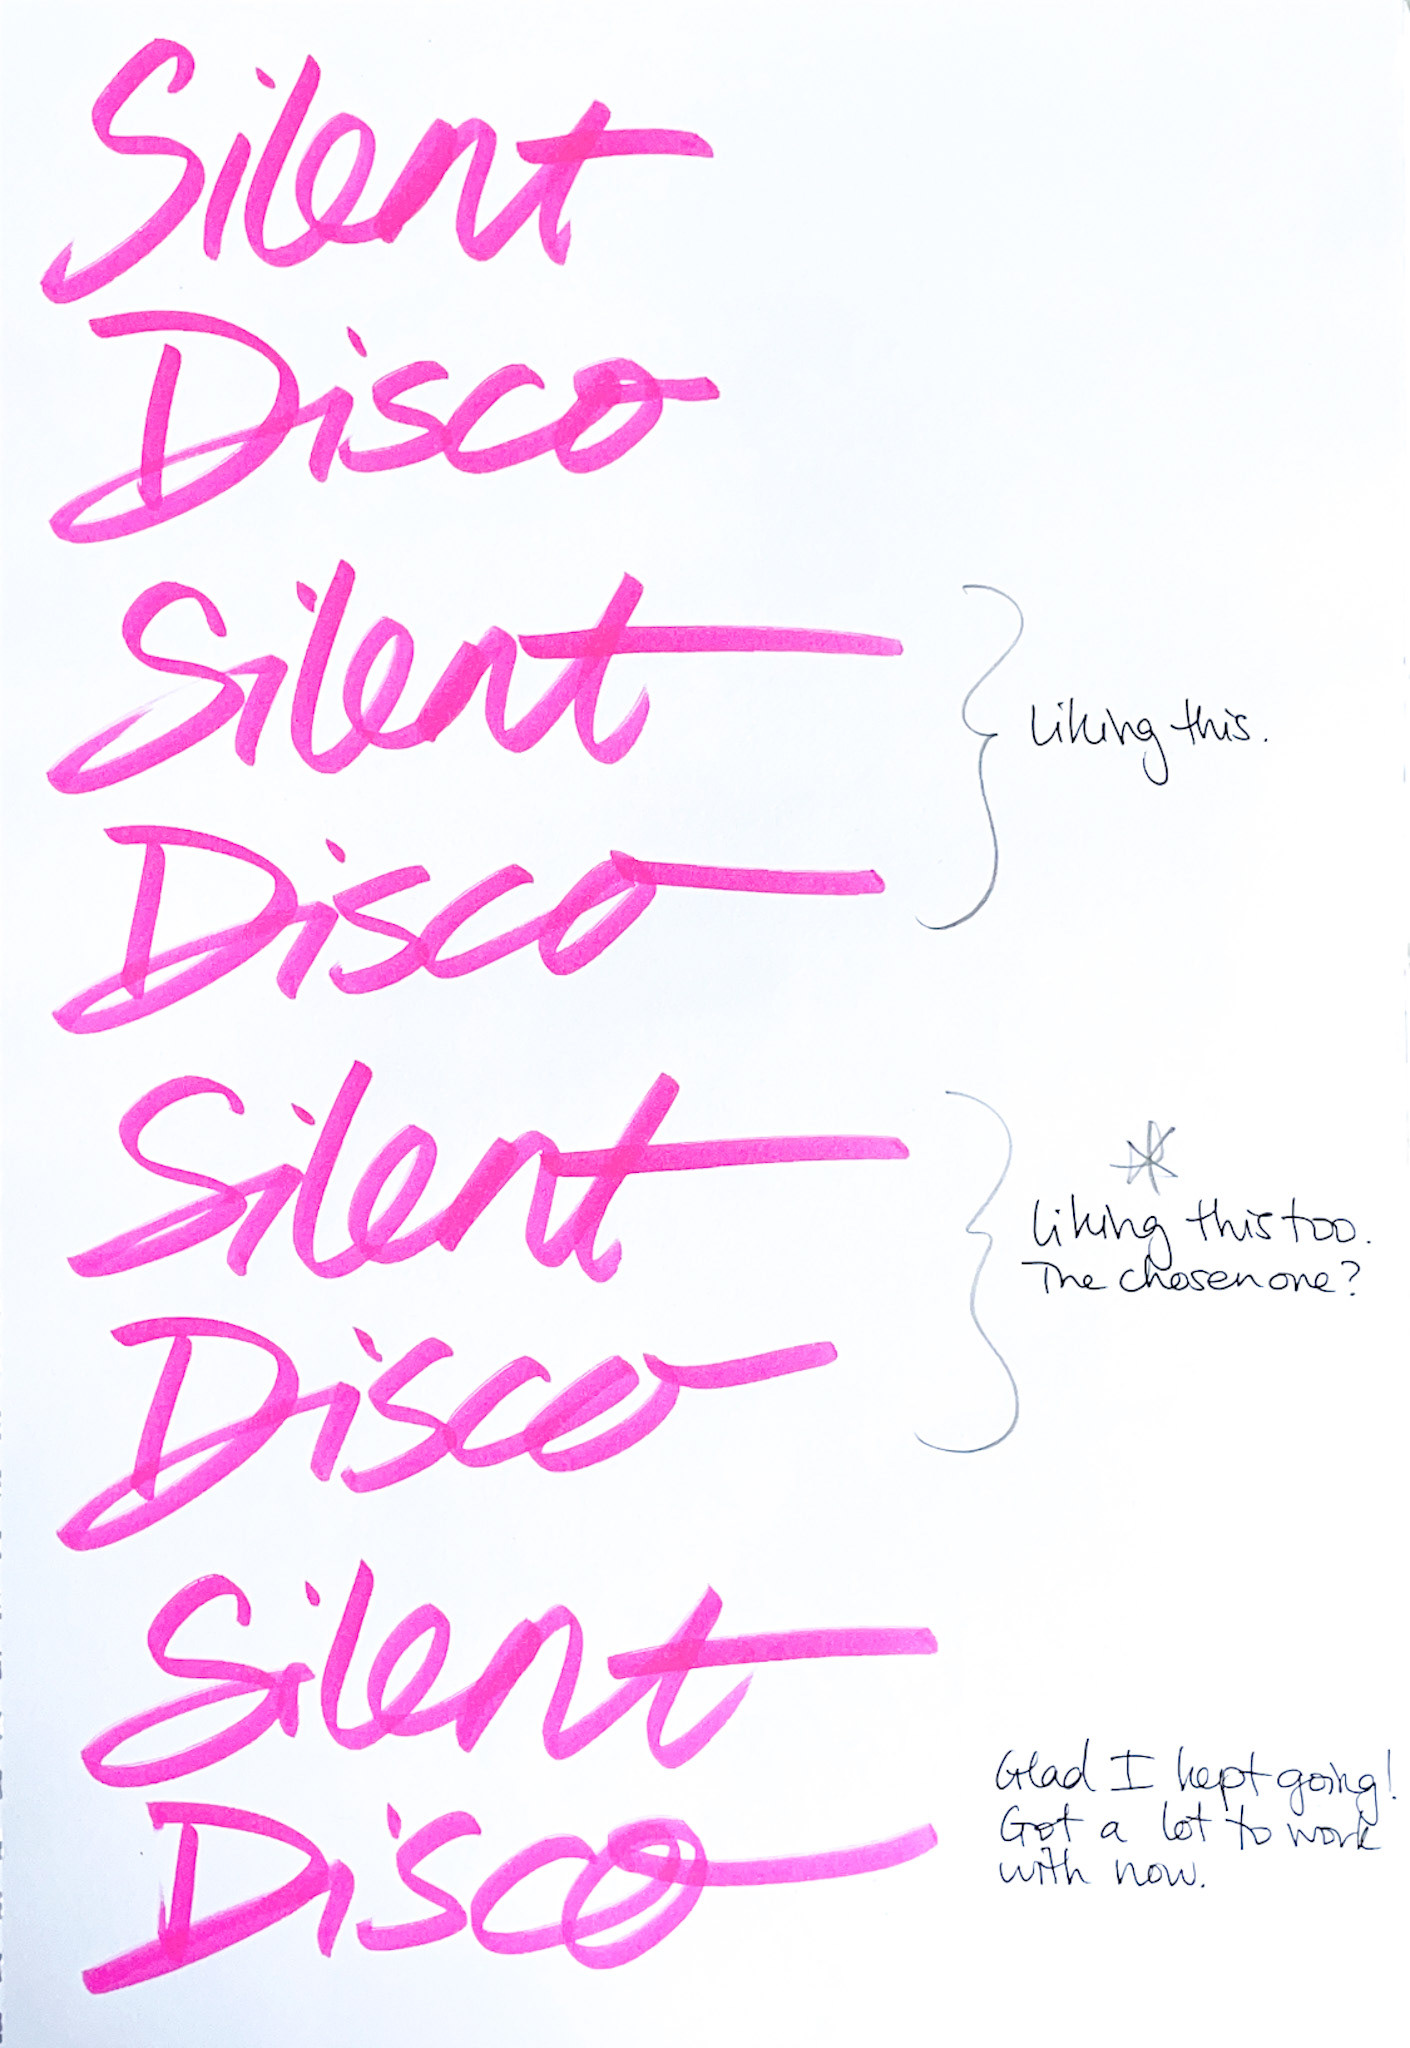 Silent
Disco
Silent
Liking this.
Disco
Silent
Liking this too.
The chosen one?
Disco
Silent
Glad I kept going!
Got a lot to work
with now.
Disco